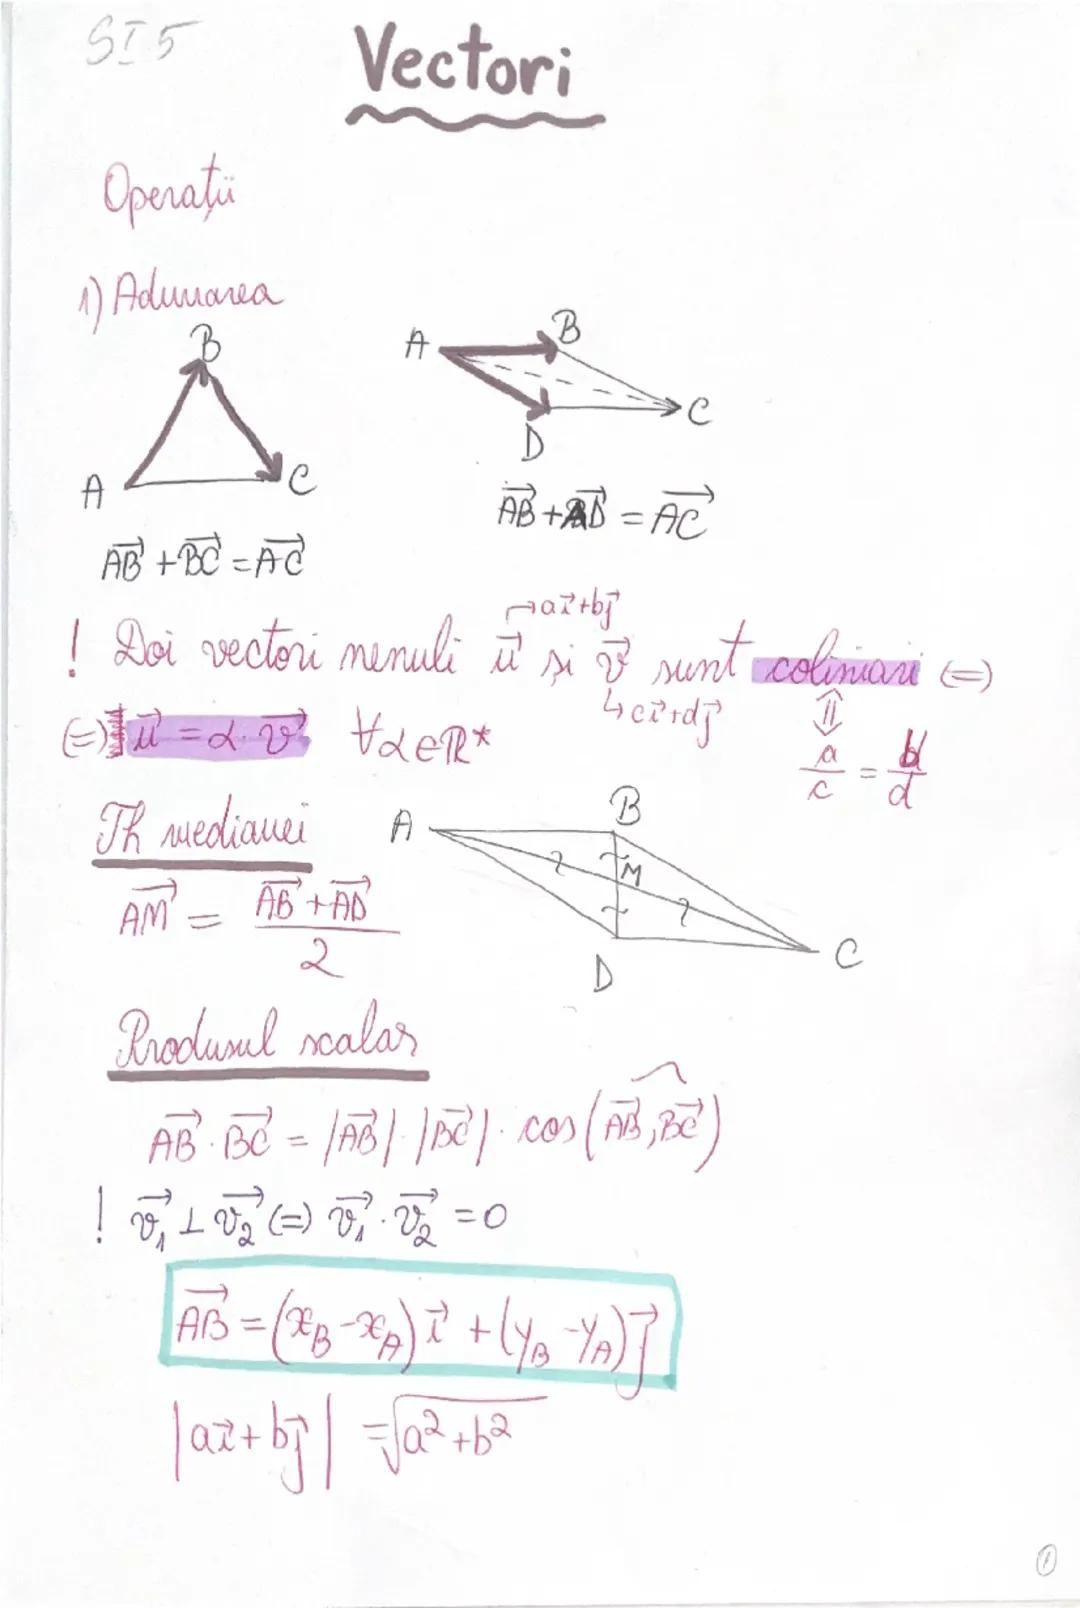 SI 5
Vectori
Operații
1) Adunarea
B
A
C
A
B
C
D
AB⃗ + BC⃗ = AC⃗
AB⃗ + AD⃗ = AC⃗
→ ai⃗ + bj⃗
! Doi vectori nenuli u⃗ și v⃗ sunt coliniari (=)
↳ ci⃗ + dj⃗
⇕
(=) u⃗ = α · v⃗ ∀α∈ℝ*
a/c = b/d
Th medianei
A
B
M
D
C
AM⃗ = (AB⃗ + AD⃗)/2
Produsul scalar
AB⃗ · BC⃗ = |AB⃗| · |BC⃗| · cos(AB⃗, BC⃗)
! v₁⃗ ⊥ v₂⃗ (=) v₁⃗ · v₂⃗ = 0
AB⃗ = (x_B - x_A) i⃗ + (y_B - y_A) j⃗
|ai⃗ + bj⃗| = √(a² + b²)
1